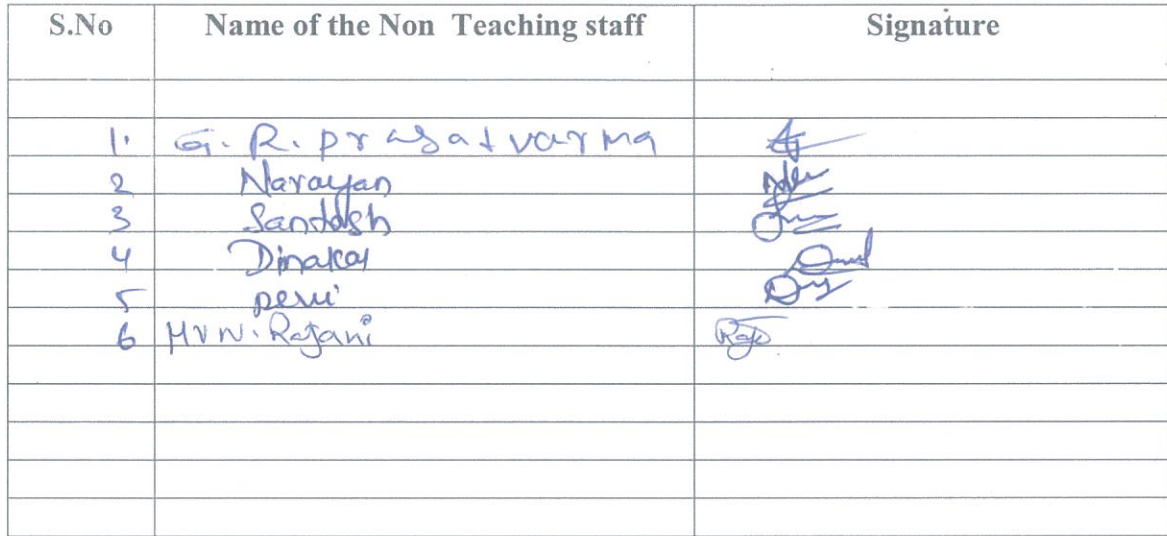 S.No Name of the Non Teaching staff Signature
1. G. R. prasad varma
2 Narayan
3 Sandosh
4 Dinakar
5
6 M V N. Rajani